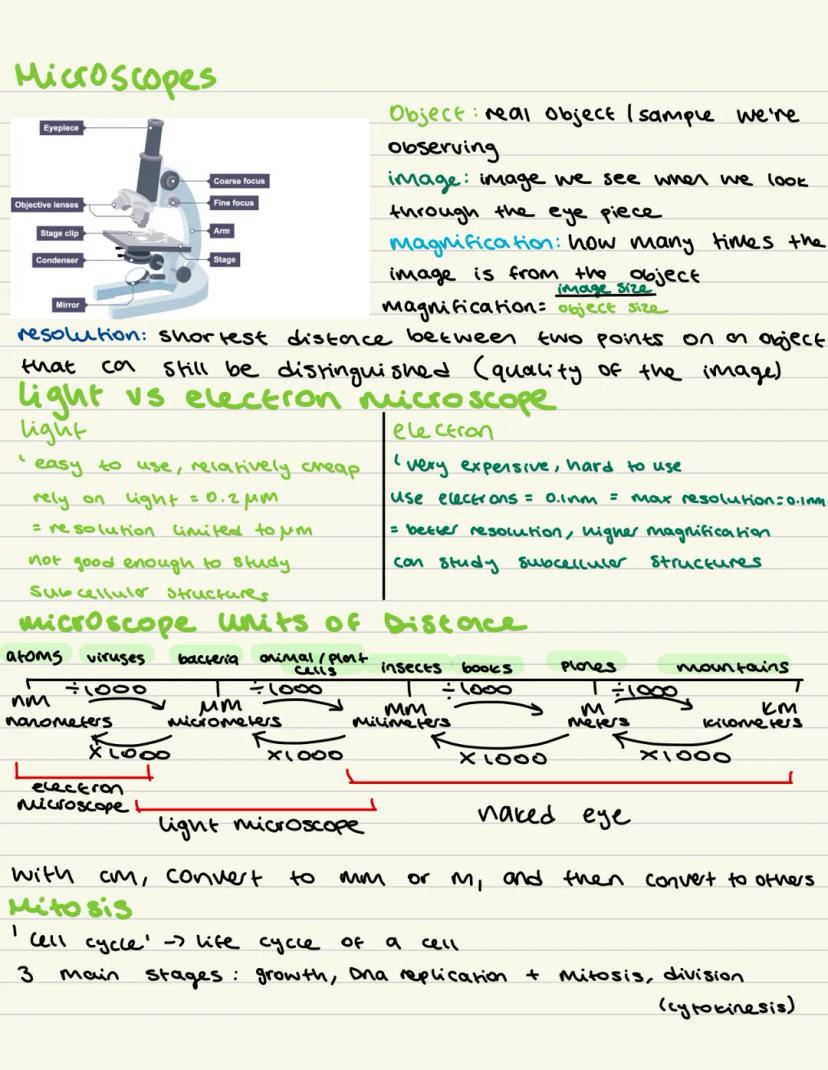 Microscopes
Eyepiece
Objective lenses
Stage clip
Condenser
Mirror
Coarse focus
Fine focus
Arm
Stage
Object: real object / sample we're
observing
image: image we see when we look
through the eye piece
magnification: how many times the
image is from the object
magnification = image size
object size
resolution: shortest distance between two points on an object
that can still be distinguished (quality of the image)
light vs electron microscope
light
' easy to use, relatively cheap
rely on light = 0.2 µm
= resolution limited to µm
not good enough to study
subcellular structures
electron
' very expensive, hard to use
use electrons = 0.1nm = max resolution = 0.1nm
= better resolution, higher magnification
can study subcellular structures
microscope units of Distance
atoms viruses bacteria animal / plant cells insects books planes mountains
÷1000 ÷1000 ÷1000 ÷1000
nm µm mm m km
nanometers micrometers milimeters meters kilometers
x1000 x1000 x1000 x1000
electron
microscope
light microscope
naked eye
with cm, convert to mm or m, and then convert to others
Mitosis
'cell cycle' -> life cycle of a cell
3 main stages: growth, Dna replication + mitosis, division
(cytokinesis)